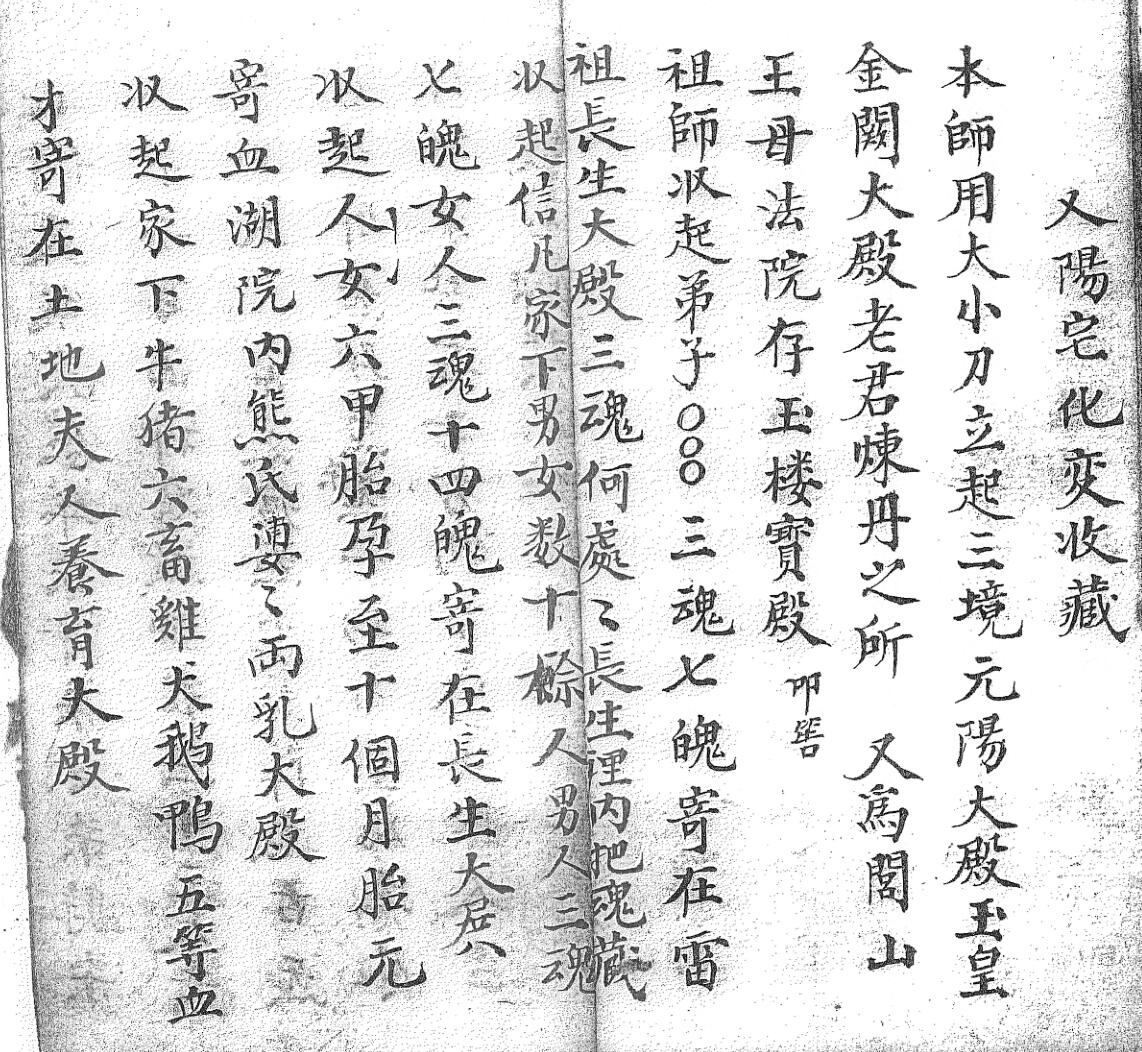 又陽宅化变收藏
本師用大小刀立起三境元陽大殿玉皇
金闕大殿老君煉丹之所 又為閭山
王母法院存玉楼寳殿 叩筶
祖師収起弟子〇〇〇三魂七魄寄在雷
祖長生大殿三魂何處〻長生裡内把魂藏
収起信凡家下男女数十餘人男人三魂
七魄女人三魂十四魄寄在長生大殿
収起人女六甲胎孕至十個月胎元
寄血湖院内熊氏婆〻両乳大殿
収起家下牛猪六畜雞犬鹅鴨五等血
才寄在土地夫人養育大殿